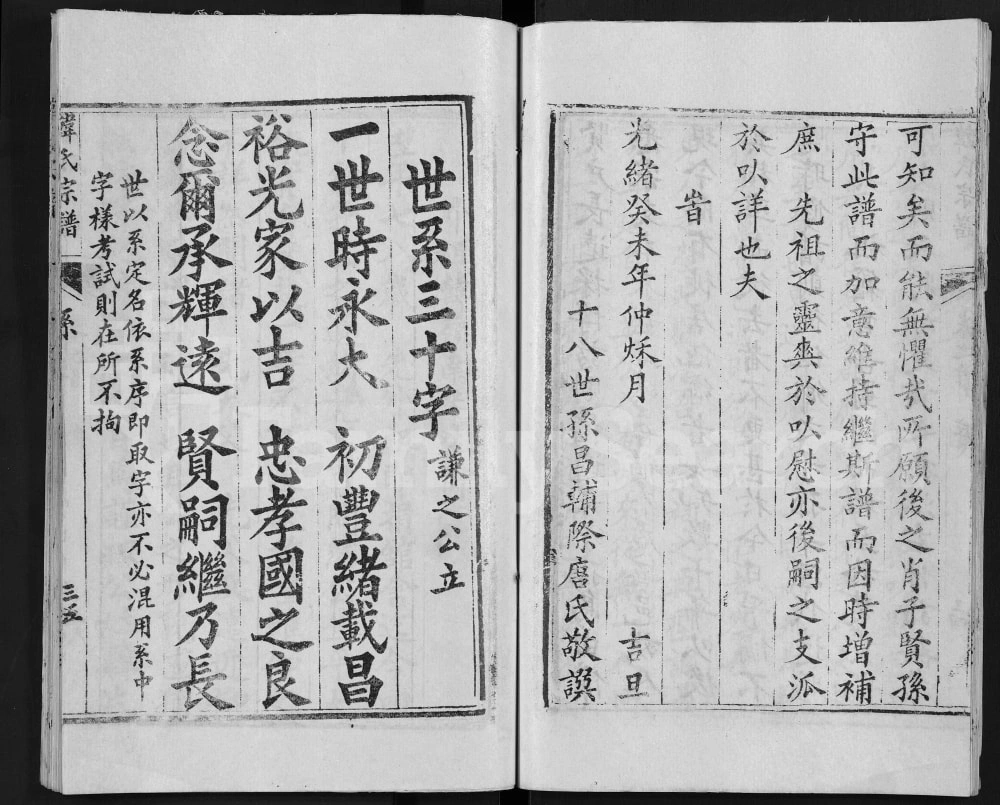 可知矣而能無懼哉所願後之肖子賢孫
守此譜而加意維持繼斯譜而因時增補
庶　先祖之靈爽於以慰亦後嗣之支派
於以詳也夫
旹
光緒癸未年仲秌月　吉旦
十八世孫昌輔際唐氏敬譔
世系三十字　謙之公立
一世時永大　初豐緒載昌
裕光家以吉　忠孝國之良
念爾承輝遠　賢嗣繼乃長
世以系定名依系序即取字亦不必混用系中
字樣考試則在所不拘
氏宗譜
系
三五